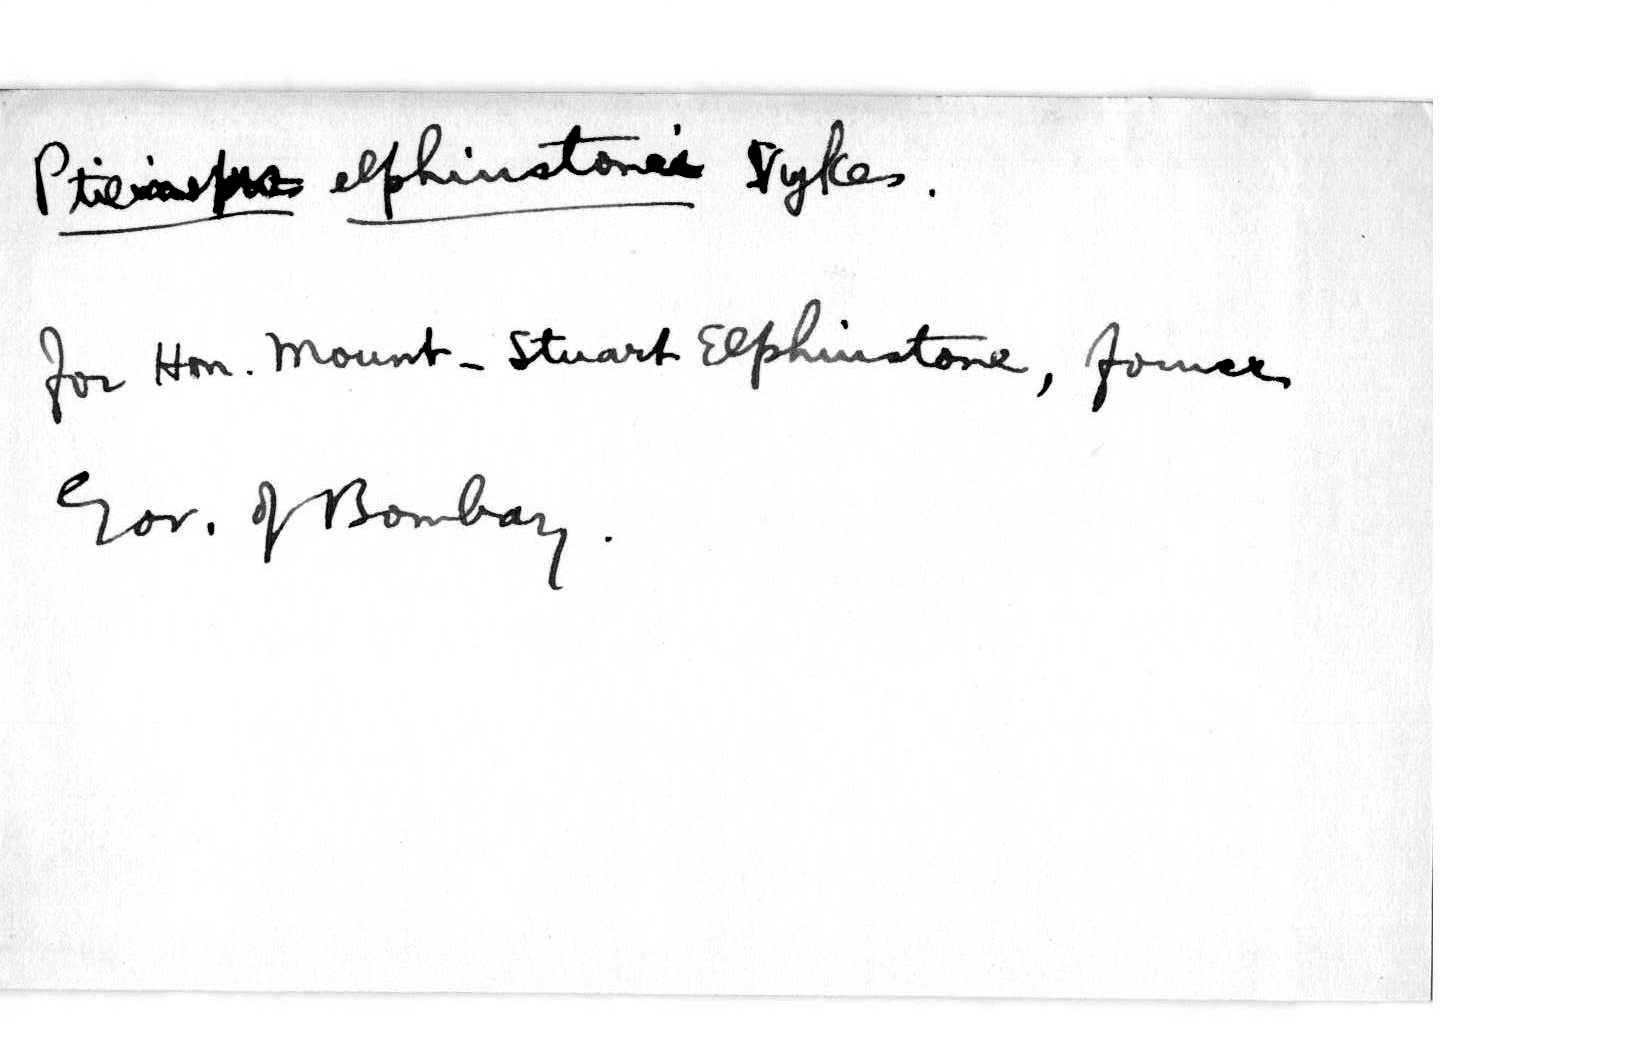 Ptilinopus elphinstonii Sykes.
for Hon. Mount-Stuart Elphinstone, former
Gov. of Bombay.